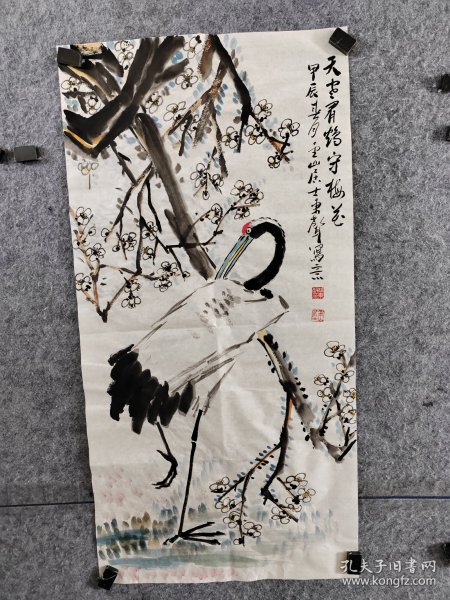 天寒有鹤守梅花
甲辰春月金山居士東聲寫意
孔夫子旧书网
www.kongfz.com